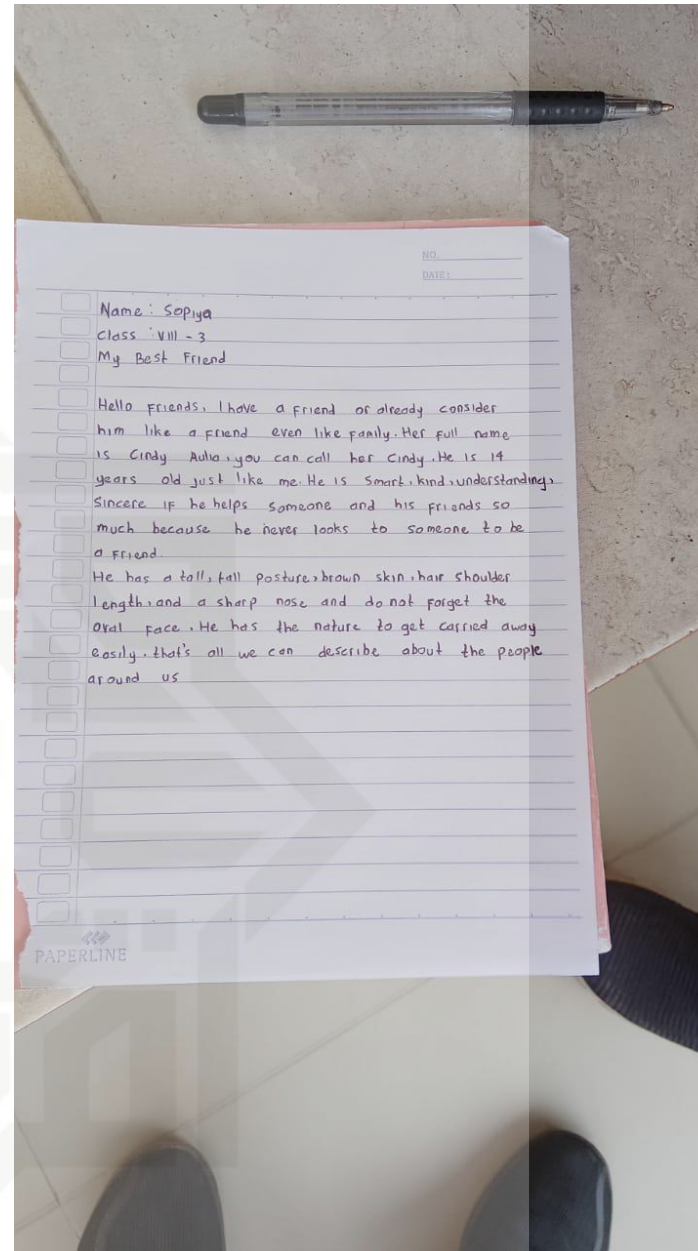 NO.
DATE:
Name : Sopiya
Class : VIII - 3
My Best Friend
Hello Friends, I have a friend or already consider
him like a friend even like family. Her full name
is Cindy Aulia, you can call her Cindy. He is 14
years old just like me. He is smart, kind, understanding,
Sincere if he helps someone and his friends so
much because he never looks to someone to be
a friend
He has a tall, tall posture, brown skin, hair shoulder
length, and a sharp nose and do not forget the
oval face. He has the nature to get carried away
easily. that's all we can describe about the people
around us
PAPERLINE